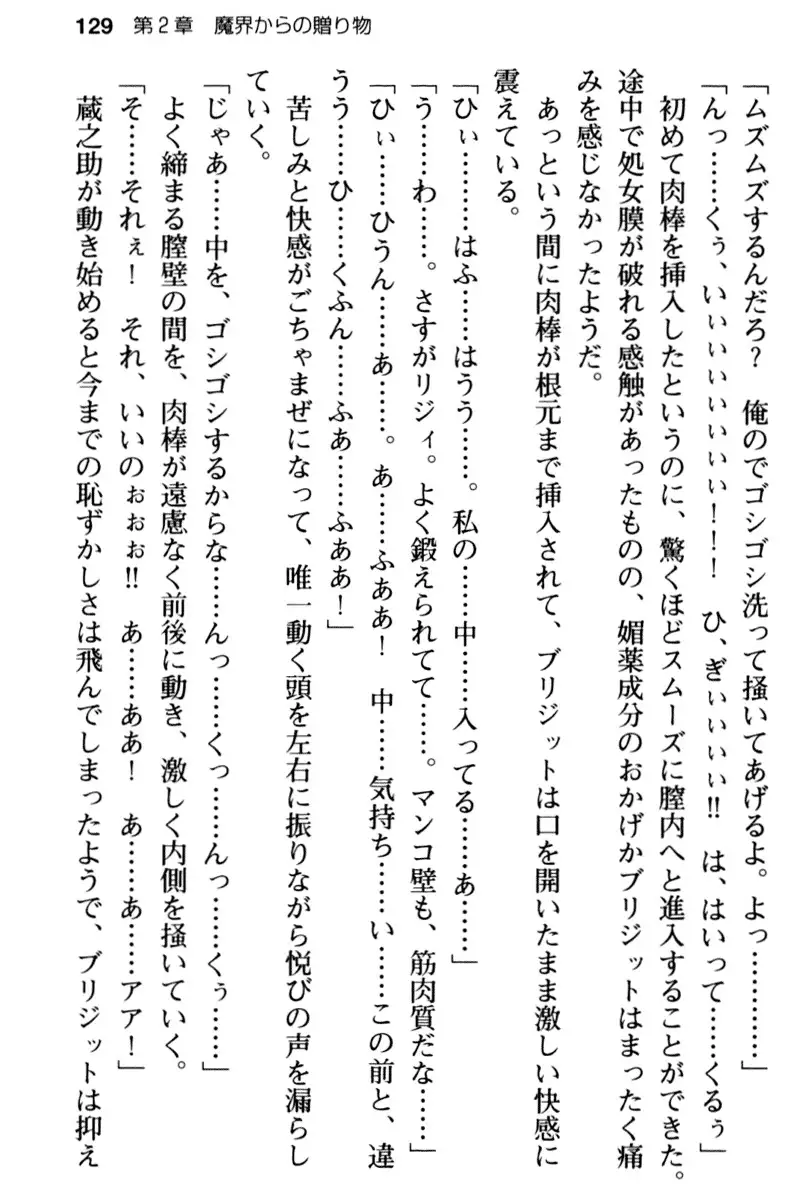 129 第2章 魔界からの贈り物
「ムズムズするんだろ？　俺のでゴシゴシ洗って掻いてあげるよ。よっ…………」
「んっ……くぅ、いぃぃぃぃぃぃぃ！！！　ひ、ぎぃぃぃぃ!!　は、はいって……くるぅ」
　初めて肉棒を挿入したというのに、驚くほどスムーズに膣内へと進入することができた。
途中で処女膜が破れる感触があったものの、媚薬成分のおかげかブリジットはまったく痛
みを感じなかったようだ。
　あっという間に肉棒が根元まで挿入されて、ブリジットは口を開いたまま激しい快感に
震えている。
「ひぃ………はふ……はうう……。私の……中……入ってる……あ……」
「う……わ……。さすがリジィ。よく鍛えられてて……。マンコ壁も、筋肉質だな……」
「ひぃ……ひうん……あ……。あ……ふああ！　中……気持ち……い……この前と、違
うう……ひ……くふん……ふあ……ふああ！」
　苦しみと快感がごちゃまぜになって、唯一動く頭を左右に振りながら悦びの声を漏らし
ていく。
「じゃあ……中を、ゴシゴシするからな……んっ……くっ……んっ……くぅ……」
　よく締まる膣壁の間を、肉棒が遠慮なく前後に動き、激しく内側を掻いていく。
「そ……それぇ！　それ、いいのぉぉぉ!!　あ……ああ！　あ……あ……アア！」
　蔵之助が動き始めると今までの恥ずかしさは飛んでしまったようで、ブリジットは抑え